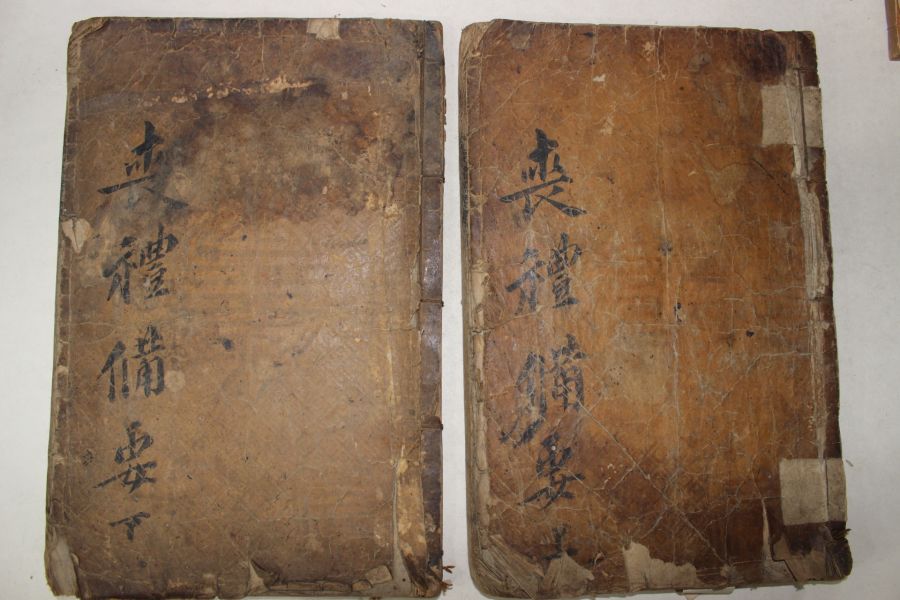 喪禮備要 下
喪禮備要 上